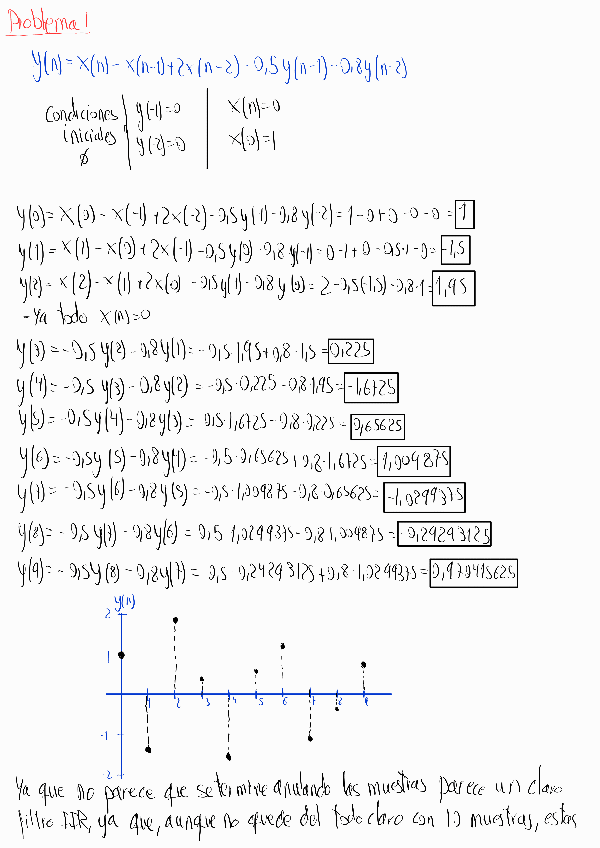 Problema 1
y(n) = x(n) - x(n-1) + 2x(n-2) - 0,5y(n-1) - 0,8y(n-2)
Condiciones y(-1)=0 x(n)=0
iniciales y(2)=0 x(0)=1
ø
y(0) = x(0) - x(-1) + 2x(-2) - 0,5y(-1) - 0,8y(-2) = 1-0+0-0-0 = 1
y(1) = x(1) - x(0) + 2x(-1) - 0,5y(0) - 0,8y(-1) = 0-1+0-0,5·1-0 = -1,5
y(2) = x(2) - x(1) + 2x(0) - 0,5y(1) - 0,8y(0) = 2-0,5(-1,5)-0,8·1 = 1,95
- Ya todo x(n)=0
y(3) = -0,5y(2) - 0,8y(1) = -0,5·1,95+0,8·1,5 = 0,225
y(4) = -0,5y(3) - 0,8y(2) = -0,5·0,225-0,8·1,95 = -1,6725
y(5) = -0,5y(4) - 0,8y(3) = 0,5·1,6725-0,8·0,225 = 0,65625
y(6) = -0,5y(5) - 0,8y(4) = -0,5·0,65625+0,8·1,6725 = 1,009875
y(7) = -0,5y(6) - 0,8y(5) = -0,5·1,009875-0,8·0,65625 = -1,0299375
y(8) = -0,5y(7) - 0,8y(6) = 0,5·1,0299375-0,8·1,009875 = -0,29293125
y(9) = -0,5y(8) - 0,8y(7) = 0,5·0,29293125+0,8·1,0299375 = 0,970415625
y(n)
2
1
1 2 3 4 5 6 7 8 9
-1
-2
Ya que no parece que se termine anulando las muestras parece un claro
filtro IIR, ya que, aunque no quede del todo claro con 10 muestras, estas